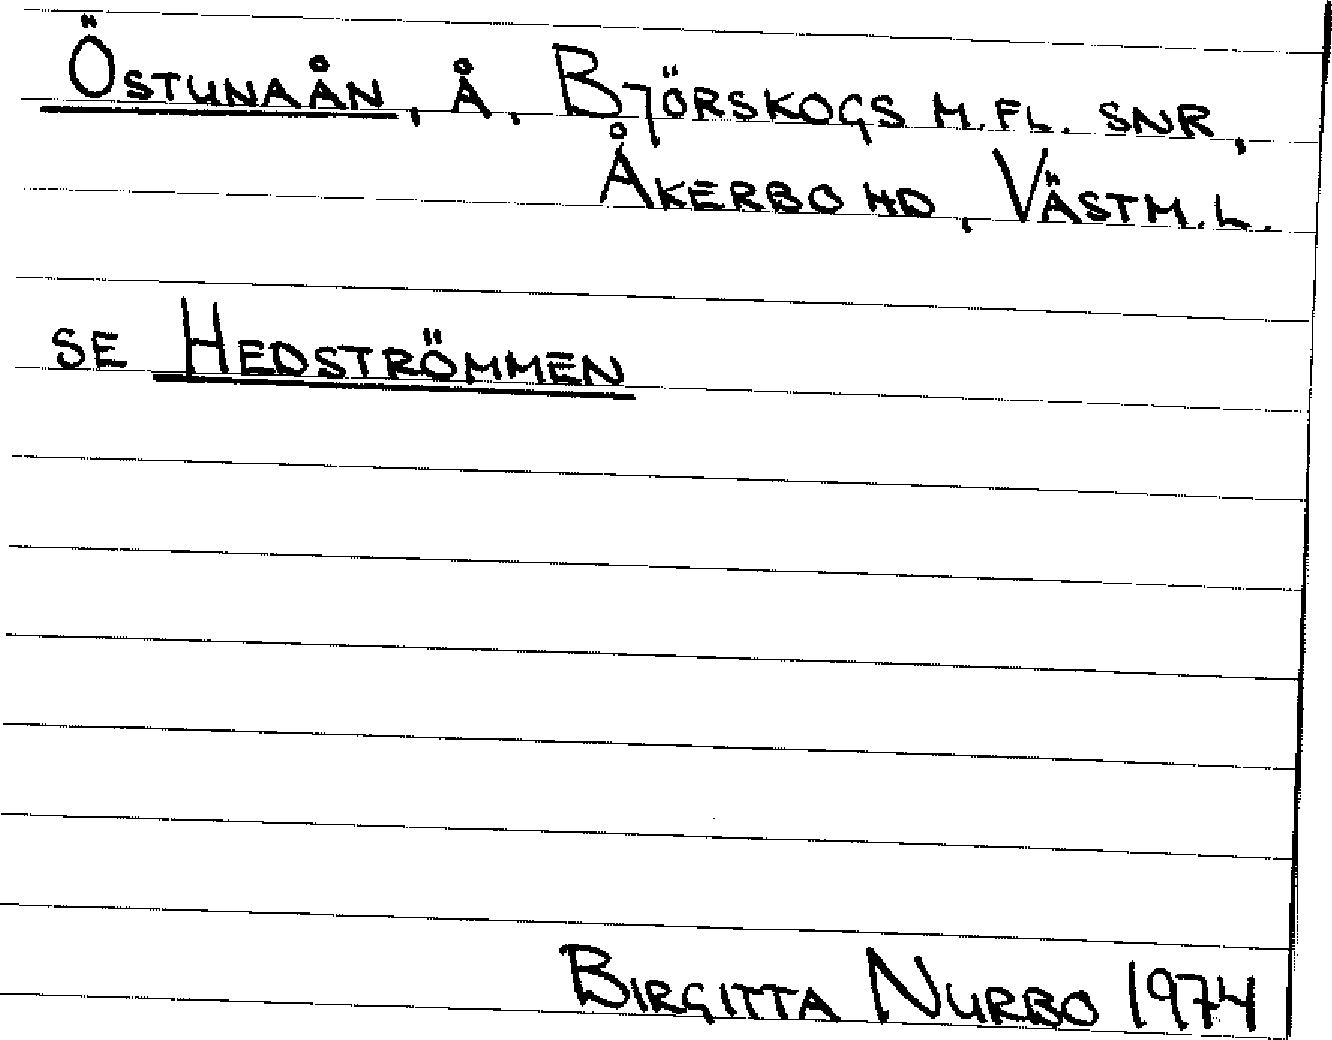 ÖSTUNAÅN, Å, BJÖRSKOGS M.FL. SNR,
ÅKERBO HD, VÄSTM.L.
SE HEDSTRÖMMEN
BIRGITTA NURBO 1974